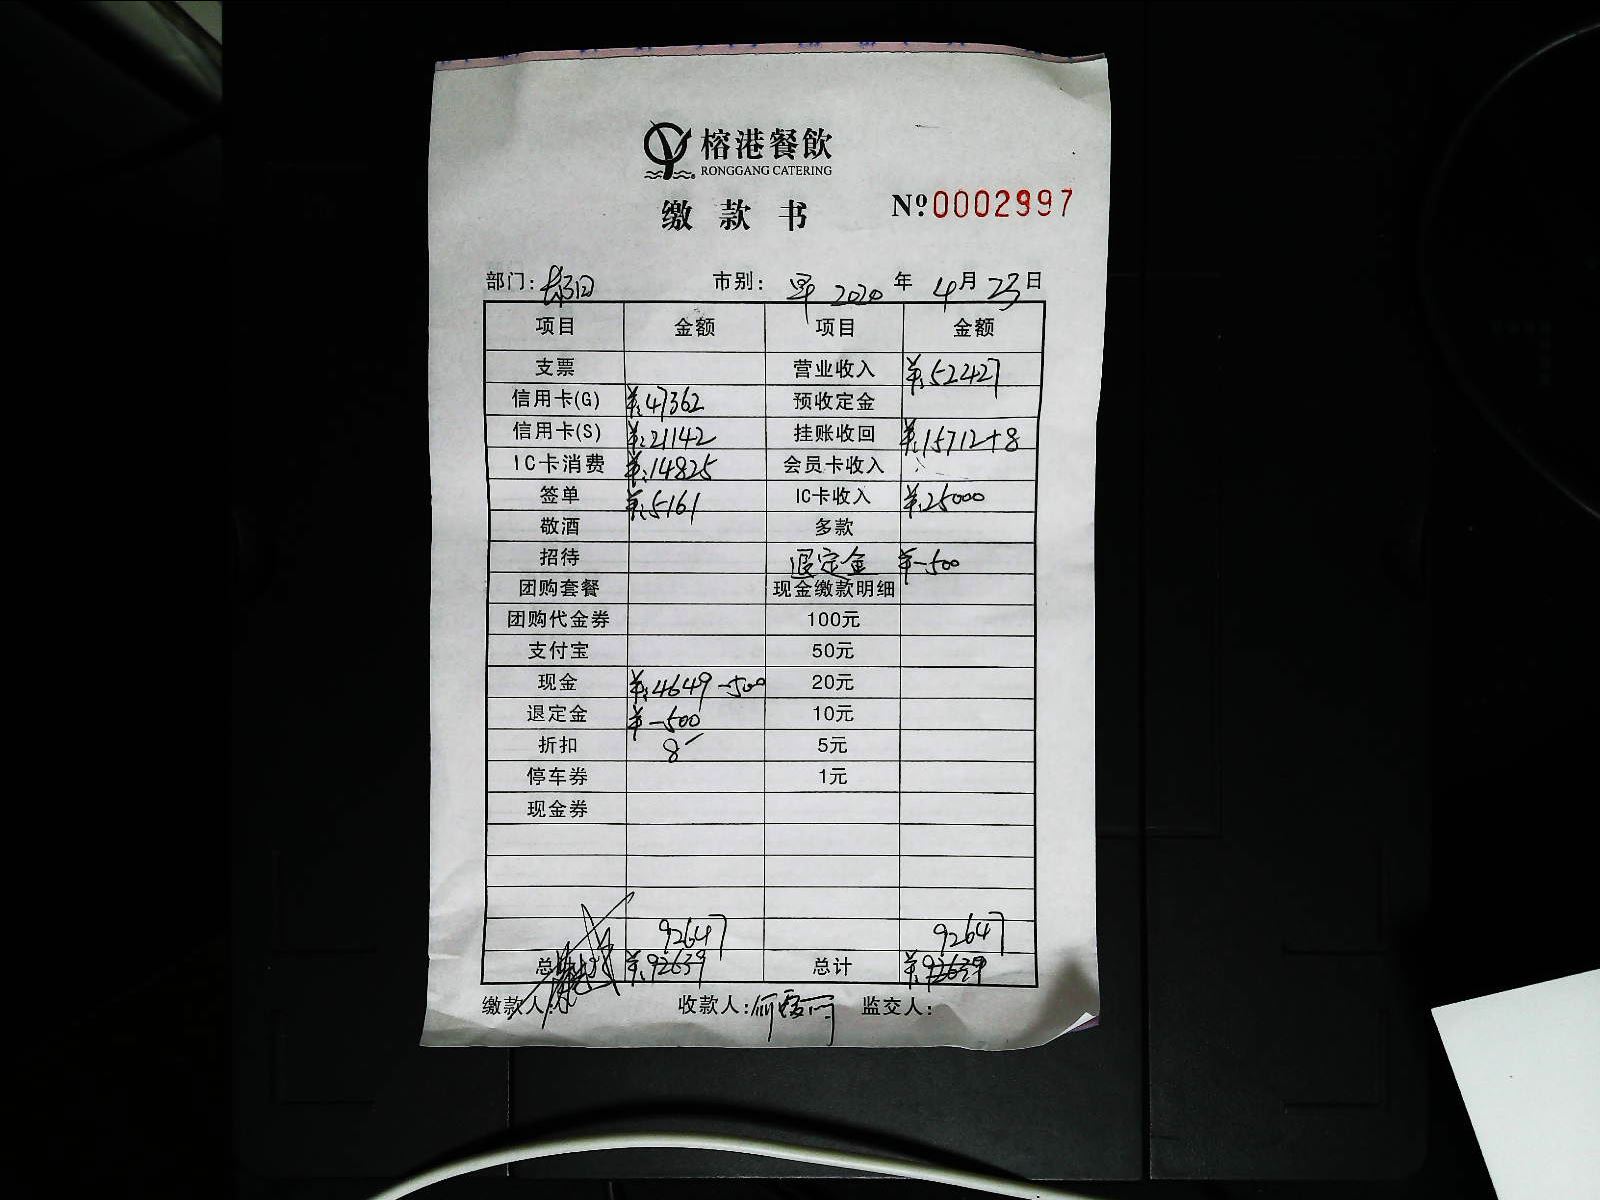 榕港餐飲
RONGGANG CATERING
缴款书 Nº0002997
部门: 市别: 早 2020年4月23日
项目 金额 项目 金额
支票 营业收入 ¥:52427
信用卡(G) ¥:47362 预收定金
信用卡(S) ¥:21142 挂账收回 ¥:15712+8
IC卡消费 ¥:14825 会员卡收入
签单 ¥:5161 IC卡收入 ¥:25000
敬酒 多款
招待 退定金 ¥-500
团购套餐 现金缴款明细
团购代金券 100元
支付宝 50元
现金 ¥:4649-500 20元
退定金 ¥-500 10元
折扣 8 5元
停车券 1元
现金券
92647 92647
总 ¥:92639 总计 ¥:92639
缴款人: 收款人: 监交人: